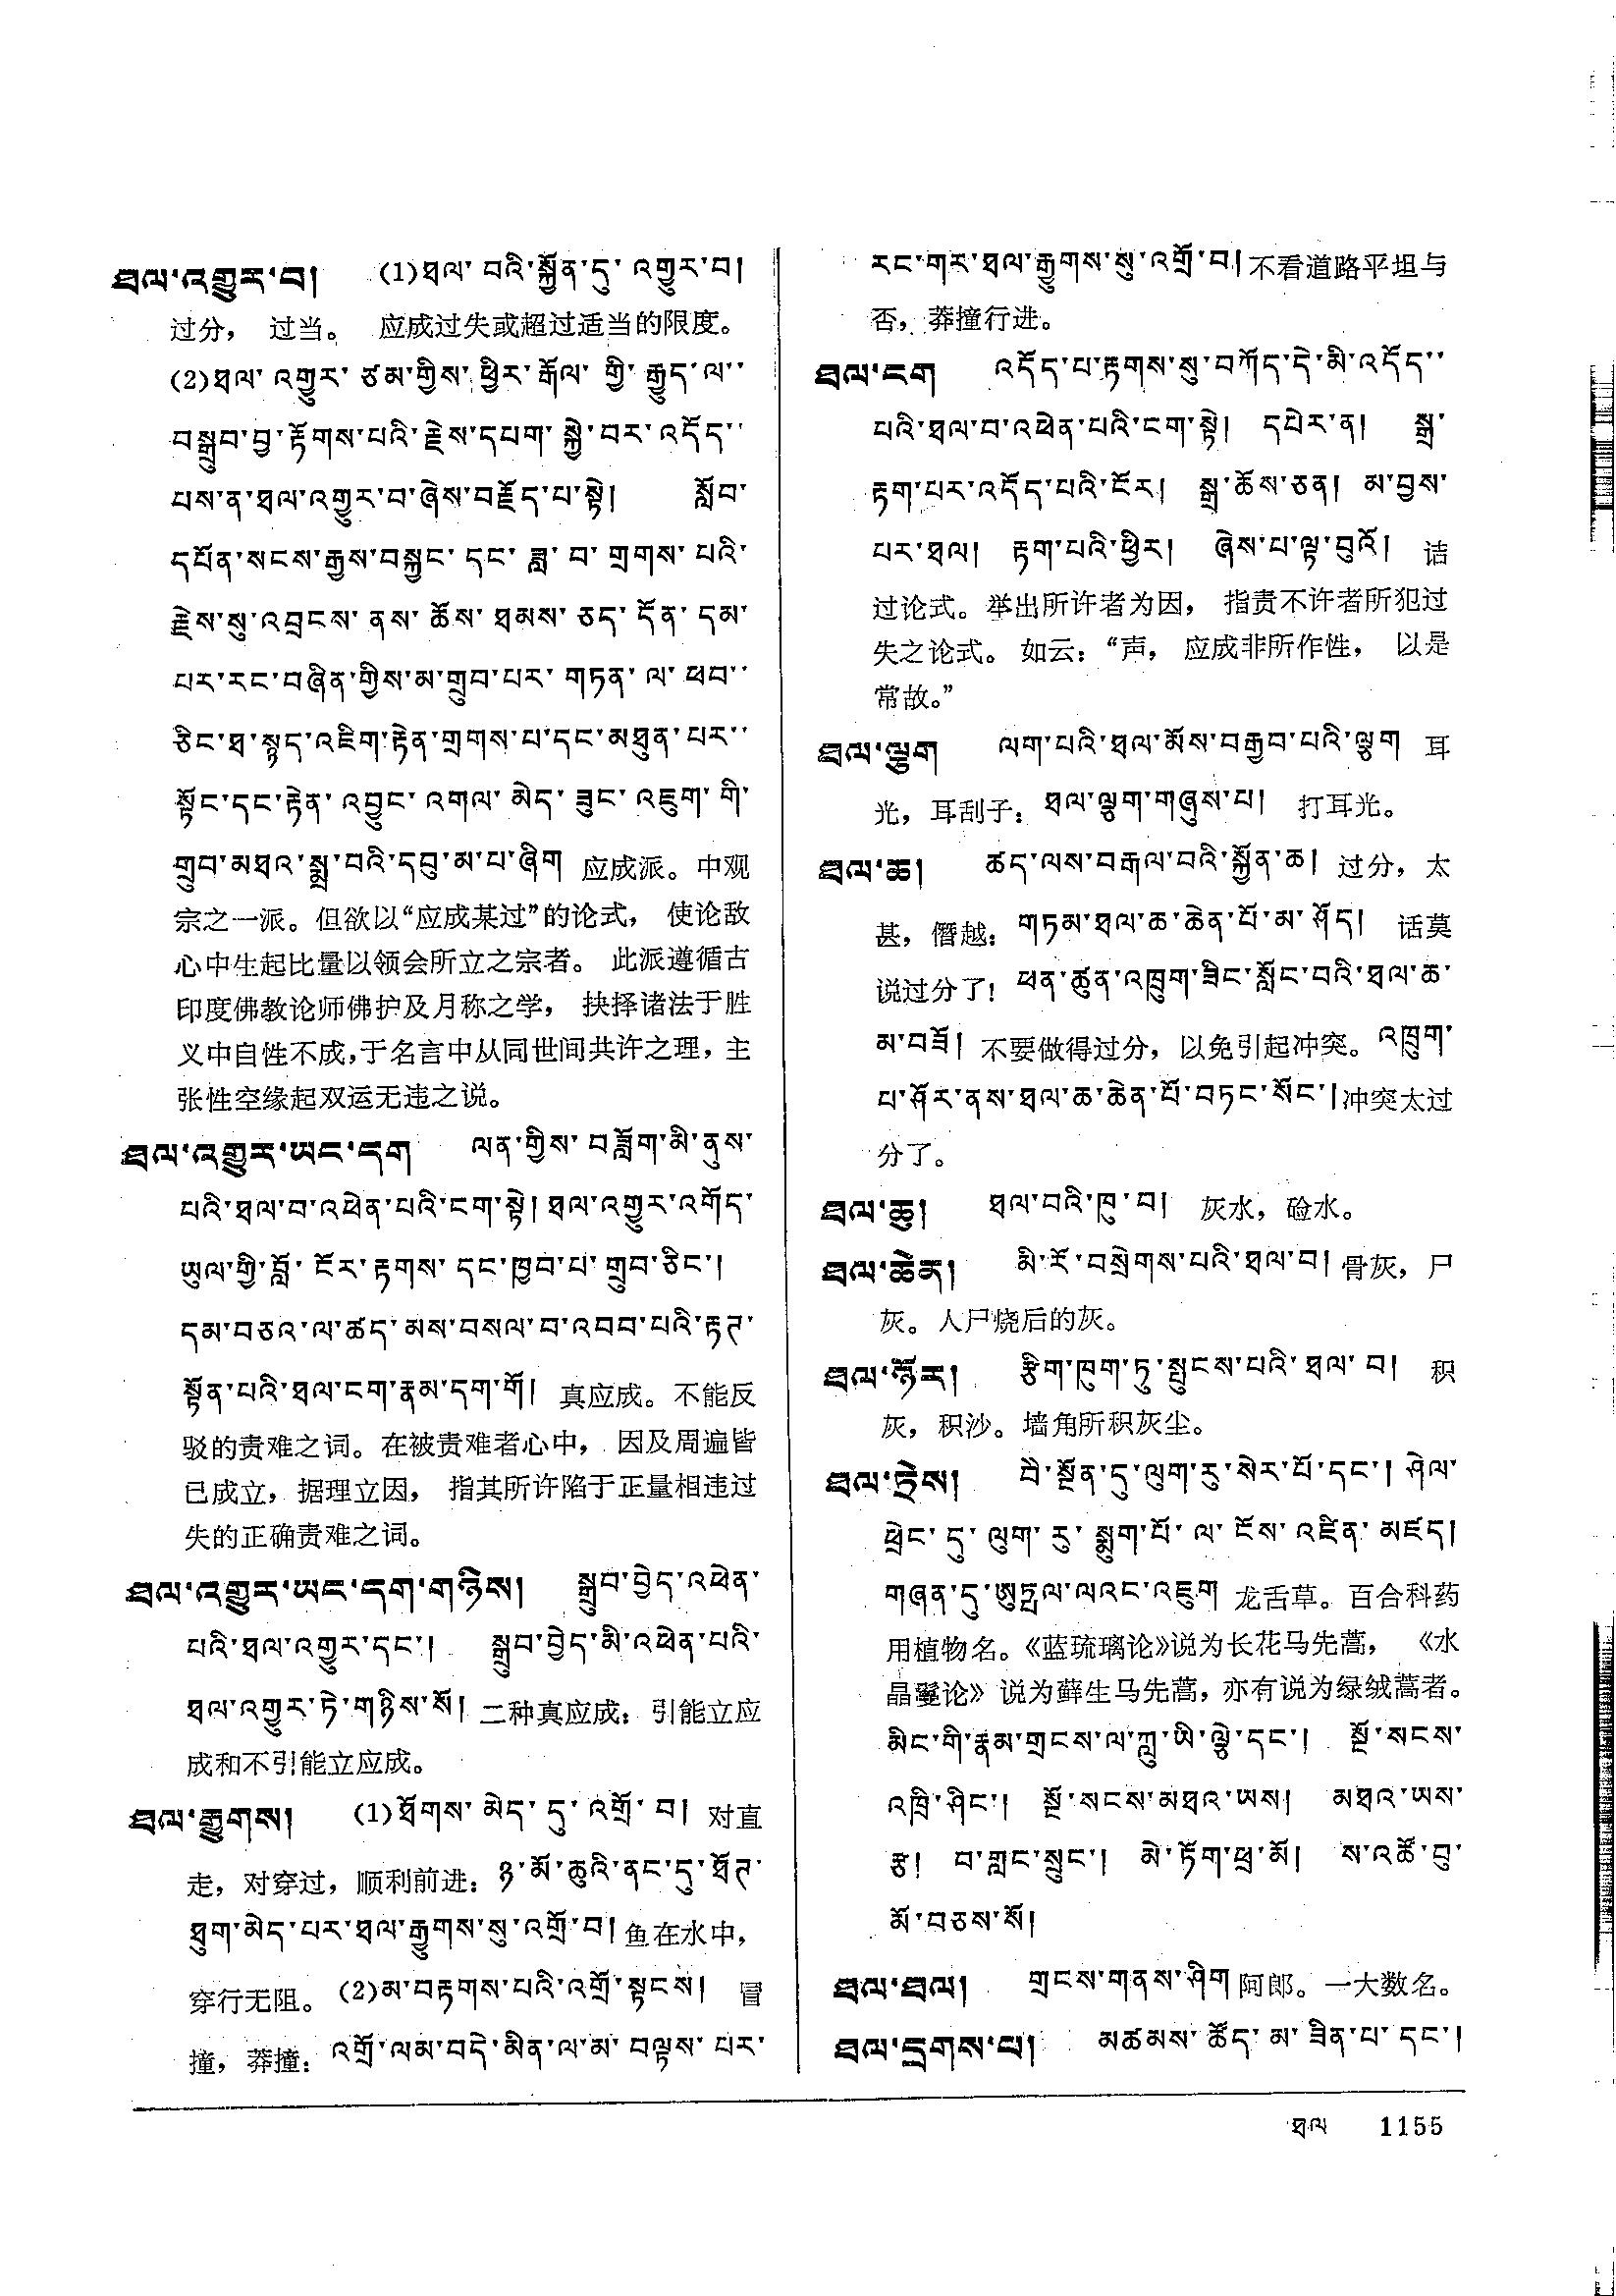 ཐལ་འགྱུར་བ། (1)ཐལ་བའི་སྐྱོན་དུ་འགྱུར་བ།
过分， 过当。 应成过失或超过适当的限度。
(2)ཐལ་འགྱུར་ཙམ་གྱིས་ཕྱིར་རྒོལ་གྱི་རྒྱུད་ལ་་
བསྒྲུབ་བྱ་རྟོགས་པའི་རྗེས་དཔག་སྐྱེ་བར་འདོད་་
པས་ན་ཐལ་འགྱུར་བ་ཞེས་བརྗོད་པ་སྟེ། སློབ་
དཔོན་སངས་རྒྱས་བསྐྱང་དང་ཟླ་བ་གྲགས་པའི་
རྗེས་སུ་འབྲངས་ནས་ཆོས་ཐམས་ཅད་དོན་དམ་
པར་རང་བཞིན་གྱིས་མ་གྲུབ་པར་གཏན་ལ་ཕབ་་
ཅིང་ཐ་སྙད་འཇིག་རྟེན་གྲགས་པ་དང་མཐུན་པར་་
སྟོང་དང་རྟེན་འབྱུང་འགལ་མེད་ཟུང་འཇུག་གི་
གྲུབ་མཐའ་སྨྲ་བའི་དབུ་མ་པ་ཞིག 应成派。中观
宗之一派。但欲以“应成某过”的论式， 使论敌
心中生起比量以领会所立之宗者。 此派遵循古
印度佛教论师佛护及月称之学， 抉择诸法于胜
义中自性不成，于名言中从同世间共许之理，主
张性空缘起双运无违之说。
ཐལ་འགྱུར་ཡང་དག ལན་གྱིས་བཟློག་མི་ནུས་
པའི་ཐལ་བ་འཕེན་པའི་ངག་སྟེ། ཐལ་འགྱུར་འགོད་
ཡུལ་གྱི་བློ་ངོར་རྟགས་དང་ཁྱབ་པ་གྲུབ་ཅིང་།
དམ་བཅའ་ལ་ཚད་མས་བསལ་བ་འབབ་པའི་རྟཊ་
སྟོན་པའི་ཐལ་ངག་རྣམ་དག་གོ། 真应成。不能反
驳的责难之词。在被责难者心中， 因及周遍皆
已成立，据理立因， 指其所许陷于正量相违过
失的正确责难之词。
ཐལ་འགྱུར་ཡང་དག་གཉིས། སྒྲུབ་བྱེད་འཕེན་
པའི་ཐལ་འགྱུར་དང་། སྒྲུབ་བྱེད་མི་འཕེན་པའི་
ཐལ་འགྱུར་ཏེ་གཉིས་སོ། 二种真应成：引能立应
成和不引能立应成。
ཐལ་རྒྱུགས། (1)ཐོགས་མེད་དུ་འགྲོ་བ། 对直
走，对穿过，顺利前进：ཉ་མོ་ཆུའི་ནང་དུ་ཐོཊ་
ཐུག་མེད་པར་ཐལ་རྒྱུགས་སུ་འགྲོ་བ། 鱼在水中，
穿行无阻。(2)མ་བརྟགས་པའི་འགྲོ་སྟངས། 冒
撞，莽撞：འགྲོ་ལམ་བདེ་མིན་ལ་མ་བལྟས་པར་
རང་གར་ཐལ་རྒྱུགས་སུ་འགྲོ་བ། 不看道路平坦与
否，莽撞行进。
ཐལ་ངག འདོད་པ་རྟགས་སུ་བཀོད་དེ་མི་འདོད་་
པའི་ཐལ་བ་འཕེན་པའི་ངག་སྟེ། དཔེར་ན། སྒྲ་
རྟག་པར་འདོད་པའི་ངོར། སྒྲ་ཆོས་ཅན། མ་བྱས་
པར་ཐལ། རྟག་པའི་ཕྱིར། ཞེས་པ་ལྟ་བུའོ། 诘
过论式。举出所许者为因， 指责不许者所犯过
失之论式。如云：“声， 应成非所作性， 以是
常故。”
ཐལ་ལྕག ལག་པའི་ཐལ་མོས་བརྒྱབ་པའི་ལྕག 耳
光，耳刮子：ཐལ་ལྕག་གཞུས་པ། 打耳光。
ཐལ་ཆ། ཚད་ལས་བརྒལ་བའི་སྐྱོན་ཆ། 过分，太
甚，僭越：གཏམ་ཐལ་ཆ་ཆེན་པོ་མ་ཤོད། 话莫
说过分了！ཕན་ཚུན་འཁྲུག་ཟིང་སློང་བའི་ཐལ་ཆ་
མ་བཟོ། 不要做得过分，以免引起冲突。འཁྲུག་
པ་ཤོར་ནས་ཐལ་ཆ་ཆེན་པོ་བཏང་སོང་། 冲突太过
分了。
ཐལ་ཆུ། ཐལ་བའི་ཁུ་བ། 灰水，硷水。
ཐལ་ཆེན། མི་རོ་བསྲེགས་པའི་ཐལ་བ། 骨灰，尸
灰。人尸烧后的灰。
ཐལ་ཉོར། རྩིག་ཁུག་ཏུ་སྤུངས་པའི་ཐལ་བ། 积
灰，积沙。墙角所积灰尘。
ཐལ་ཏྲེས། བཻ་སྔོན་དུ་ལུག་རུ་སེར་པོ་དང་། ཤེལ་
ཕྲེང་དུ་ལུག་རུ་སྨུག་པོ་ལ་ངོས་འཛིན་མཛད།
གཞན་དུ་ཨུཏྤལ་ལའང་འཇུག 龙舌草。百合科药
用植物名。《蓝琉璃论》说为长花马先蒿， 《水
晶鬘论》说为藓生马先蒿，亦有说为绿绒蒿者。
མིང་གི་རྣམ་གྲངས་ལ་ཀླུ་ཡི་ལྕེ་དང་། སྔོ་སངས་
འཁྲི་ཤིང་། སྔོ་སངས་མཐའ་ཡས། མཐའ་ཡས་
རྩ། བ་གླང་སྲུང་། མེ་ཏོག་ཕྲ་མོ། ས་འཚོ་བུ་
མོ་བཅས་སོ།
ཐལ་ཐལ། གྲངས་གནས་ཤིག 阿郎。一大数名。
ཐལ་དྲགས་པ། མཚམས་ཚོད་མ་ཟིན་པ་དང་།
ཐལ 1155